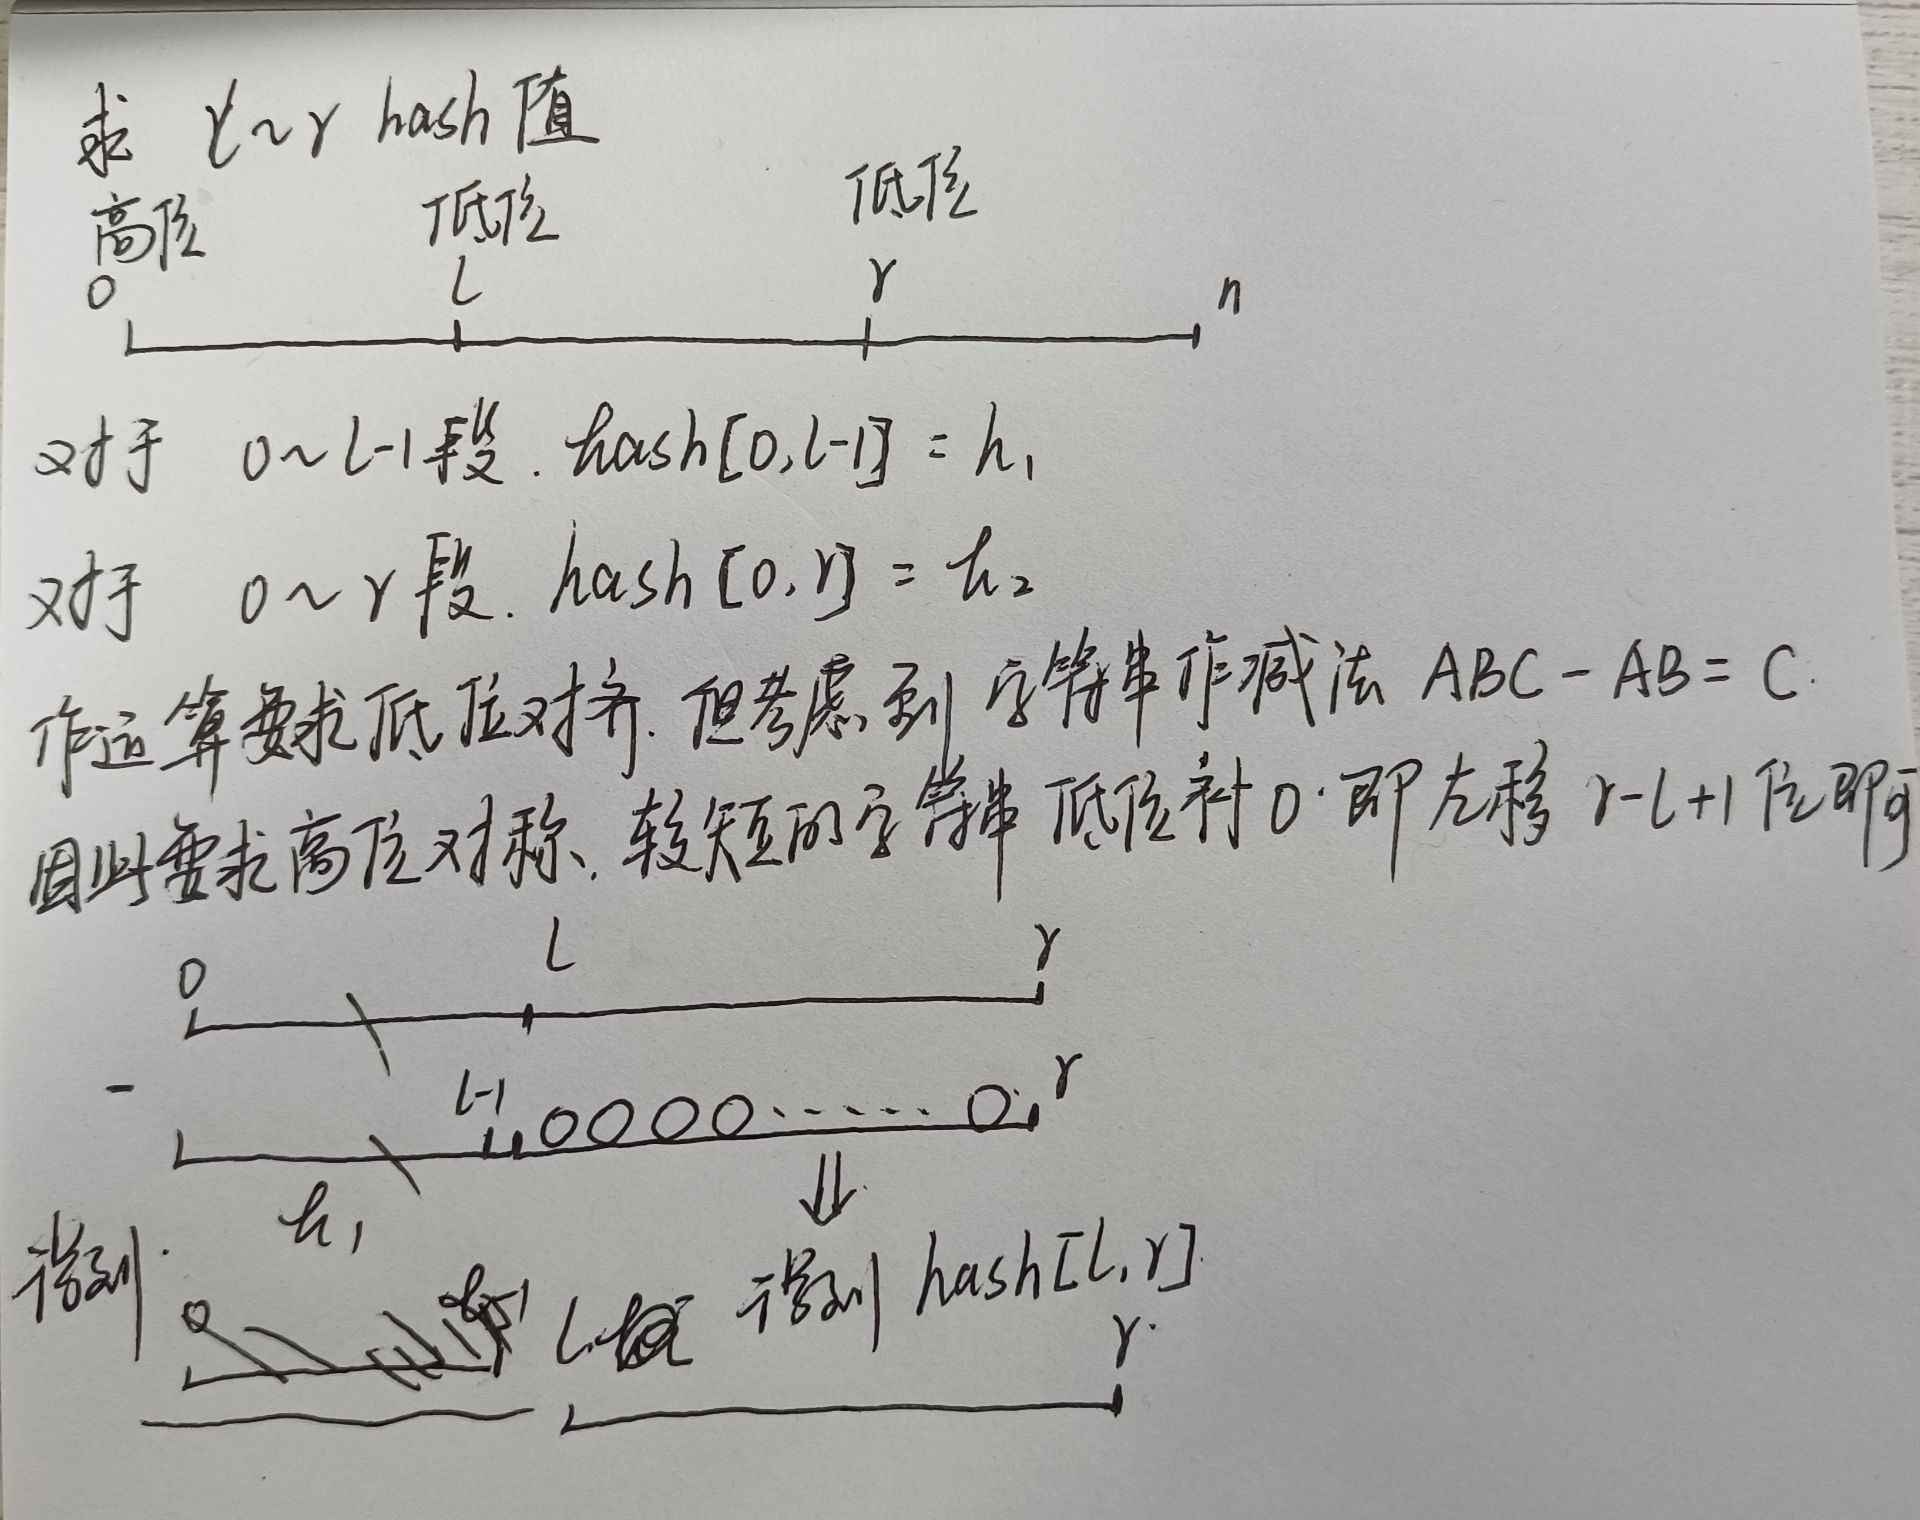 求 l~r hash值
高位 低位 低位
0 l r n
对于 0~l-1段. hash[0,l-1] = h₁
对于 0~r段. hash[0,r] = h₂
作运算要求低位对齐. 但考虑到字符串作减法 ABC - AB = C.
因此要求高位对称、较短的字符串低位补0. 即左移 r-l+1 位即可
0 l r
- l-1 0000......0 r
h₁ ⇓
得到. 得到 hash[l,r].
0 l r.